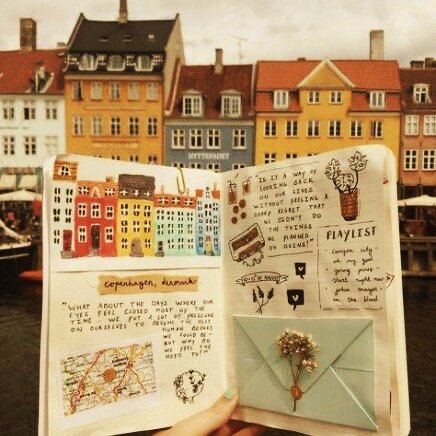 HYTTEPAINT
copenhagen, denmark
"WHAT ABOUT THE DAYS WHERE OUR
EYES FEEL CLOSED MOST OF THE
TIME. WE PUT A LOT OF PRESSURE
ON OURSELVES TO BECOME THE BEST
HUMAN BEINGS
WE COULD BE -
BUT WHY DO
WE FEEL THE
NEED TO?"
"IS IT A WAY OF
LOOKING BACK
ON OUR LIVES
WITHOUT FEELING A
SHARP REGRET THAT
WE DIDN'T DO
THE THINGS
WE PLANNED
ON DOING?"
PLAYLIST
canyon city -
oh my god -
young pines -
start right now
john mayer -
in the blood